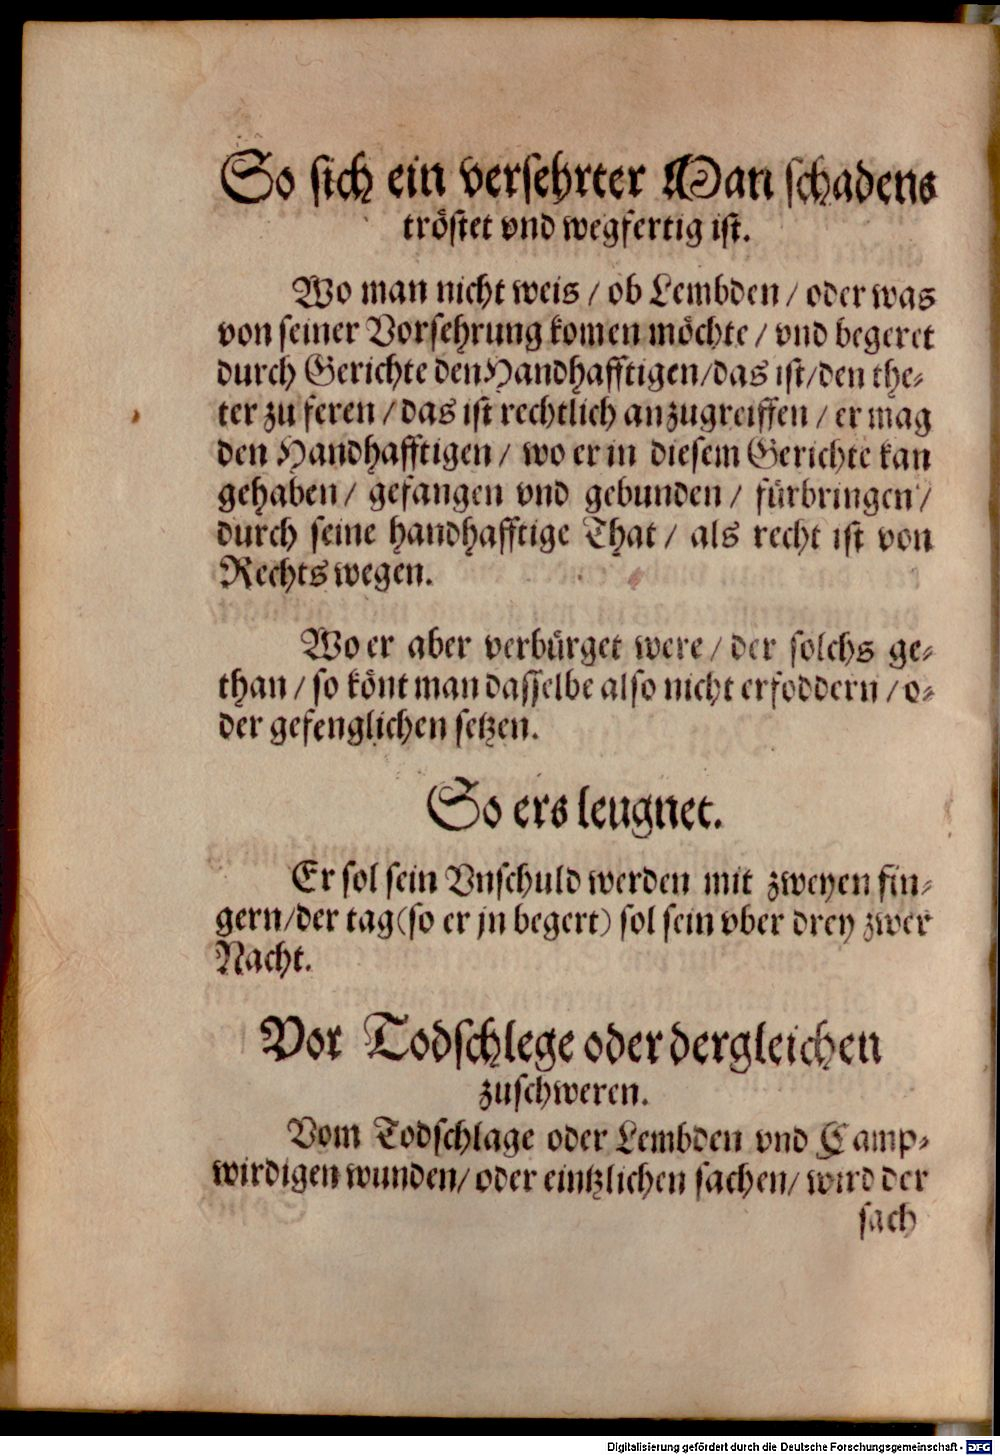 So sich ein versehrter Man schadens
tröstet vnd wegfertig ist.
Wo man nicht weis / ob Lembden / oder was
von seiner Vorsehrung komen möchte / vnd begeret
durch Gerichte den Handhafftigen/das ist/den the-
ter zu feren / das ist rechtlich anzugreiffen / er mag
den Handhafftigen / wo er in diesem Gerichte kan
gehaben / gefangen vnd gebunden / fürbringen /
durch seine handhafftige That / als recht ist von
Rechts wegen.
Wo er aber verbürget were / der solchs ge-
than / so könt man dasselbe also nicht erfoddern / o-
der gefenglichen setzen.
So ers leugnet.
Er sol sein Vnschuld werden mit zweyen fin-
gern/der tag (so er jn begert) sol sein vber drey zwer
Nacht.
Vor Todschlege oder dergleichen
zuschweren.
Vom Todschlage oder Lembden vnd Camp-
wirdigen wunden/ oder eintzlichen sachen/ wird der
sach
Digitalisierung gefördert durch die Deutsche Forschungsgemeinschaft - DFG